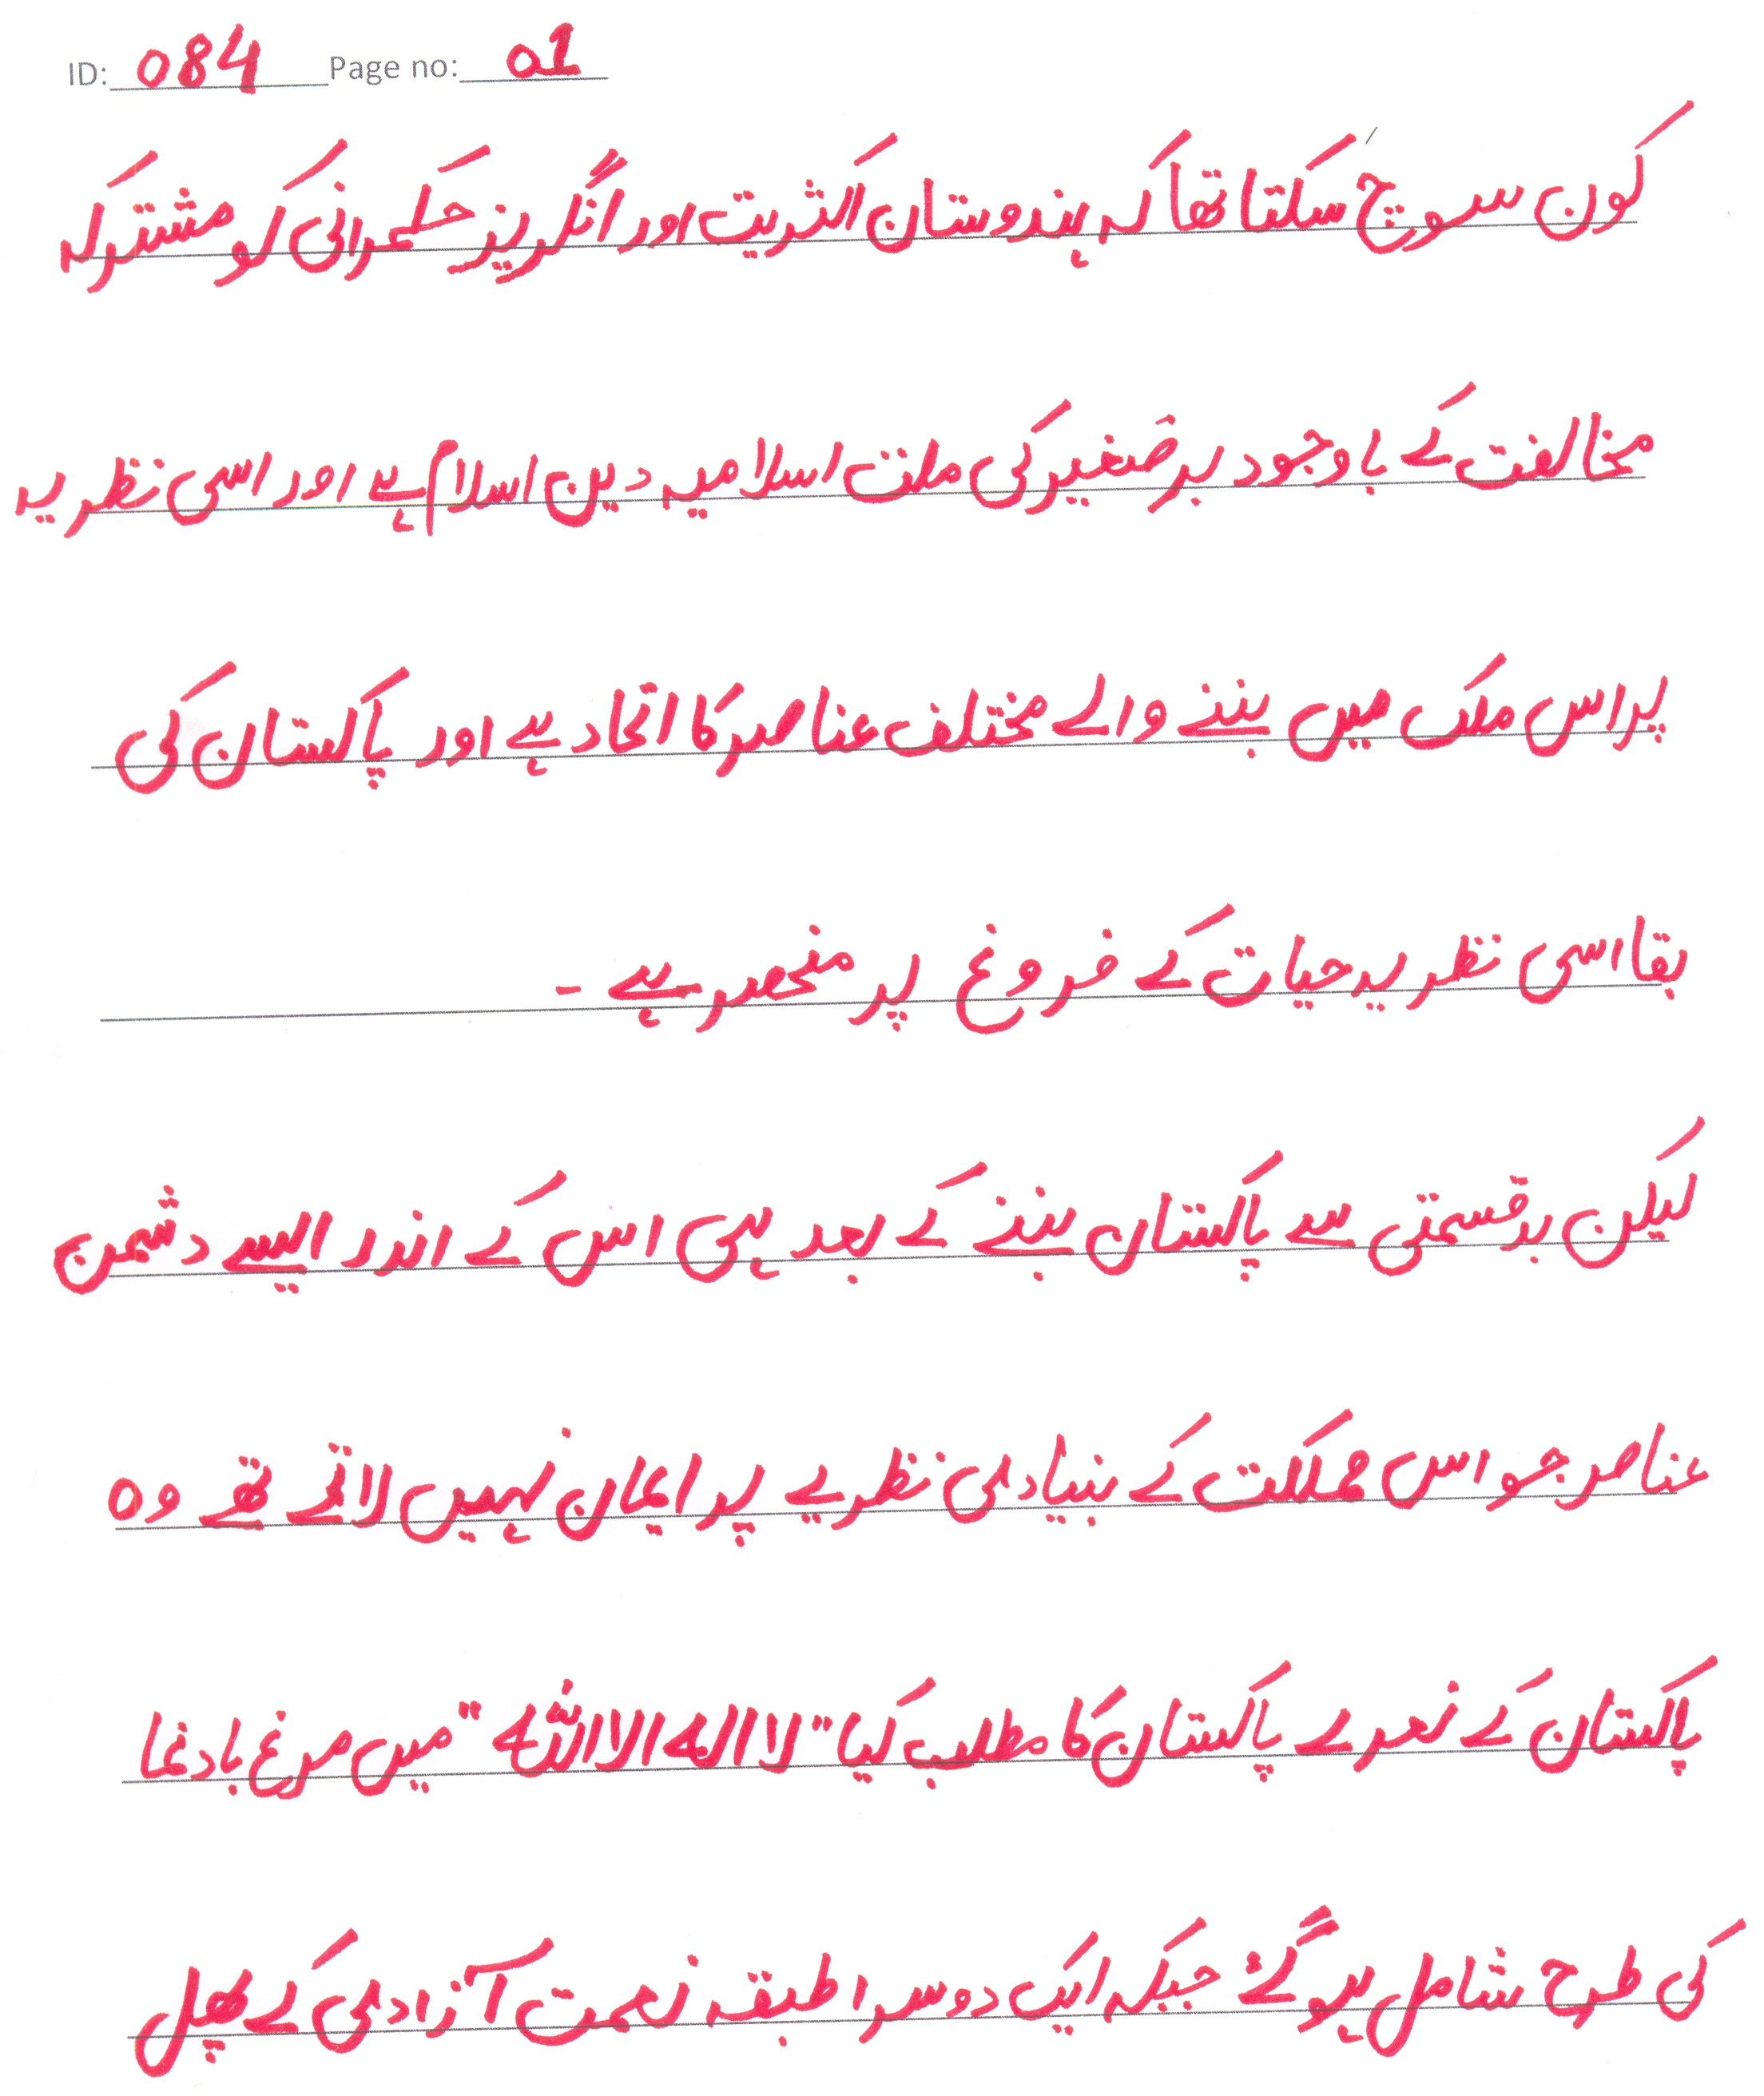 ID: 084 Page no: 01
کون سوچ سکتا تھا کہ ہندوستان اکثریت اور انگریز حکمرانی کو مشترکہ
مخالفت کے باوجود برضغیر کی ملت اسلامیہ دین اسلام ہے اور اسی نظریہ
پر اس ملک میں بننے والے مختلف عناصر کا اتحاد ہے اور پاکستان کی
بقا اسی نظریہ حیات کے فروغ پر منحصر ہے ۔
لیکن بدقسمتی سے پاکستان بننے کے بعد ہی اس کے اندر ایسے دشمن
عناصر جو اس مملکت کے بنیادی نظریے پر ایمان نہیں لاتے تھے وہ
پاکستان کے نعرے پاکستان کا مطلب کیا "لا الہ الا اللہ" میں مرغ بادنما
کی طرح شامل ہوگئے جبکہ ایک دوسرا طبقہ نعمت آزادی کے پھل